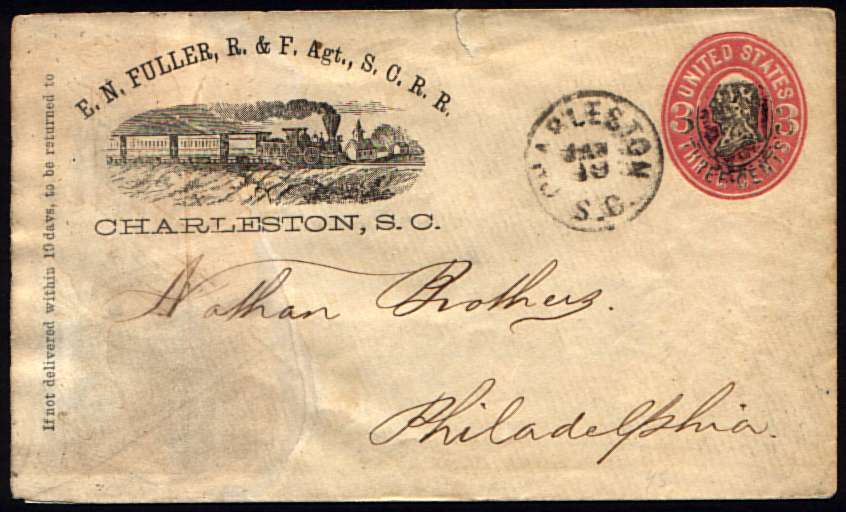 If not delivered within 10 days, to be returned to
E. N. FULLER, R. & F. Agt., S. C. R. R.
CHARLESTON, S. C.
CHARLESTON
JAN
19
S.C.
UNITED STATES
3 3
THREE CENTS
Nathan Brothers.
Philadelphia.